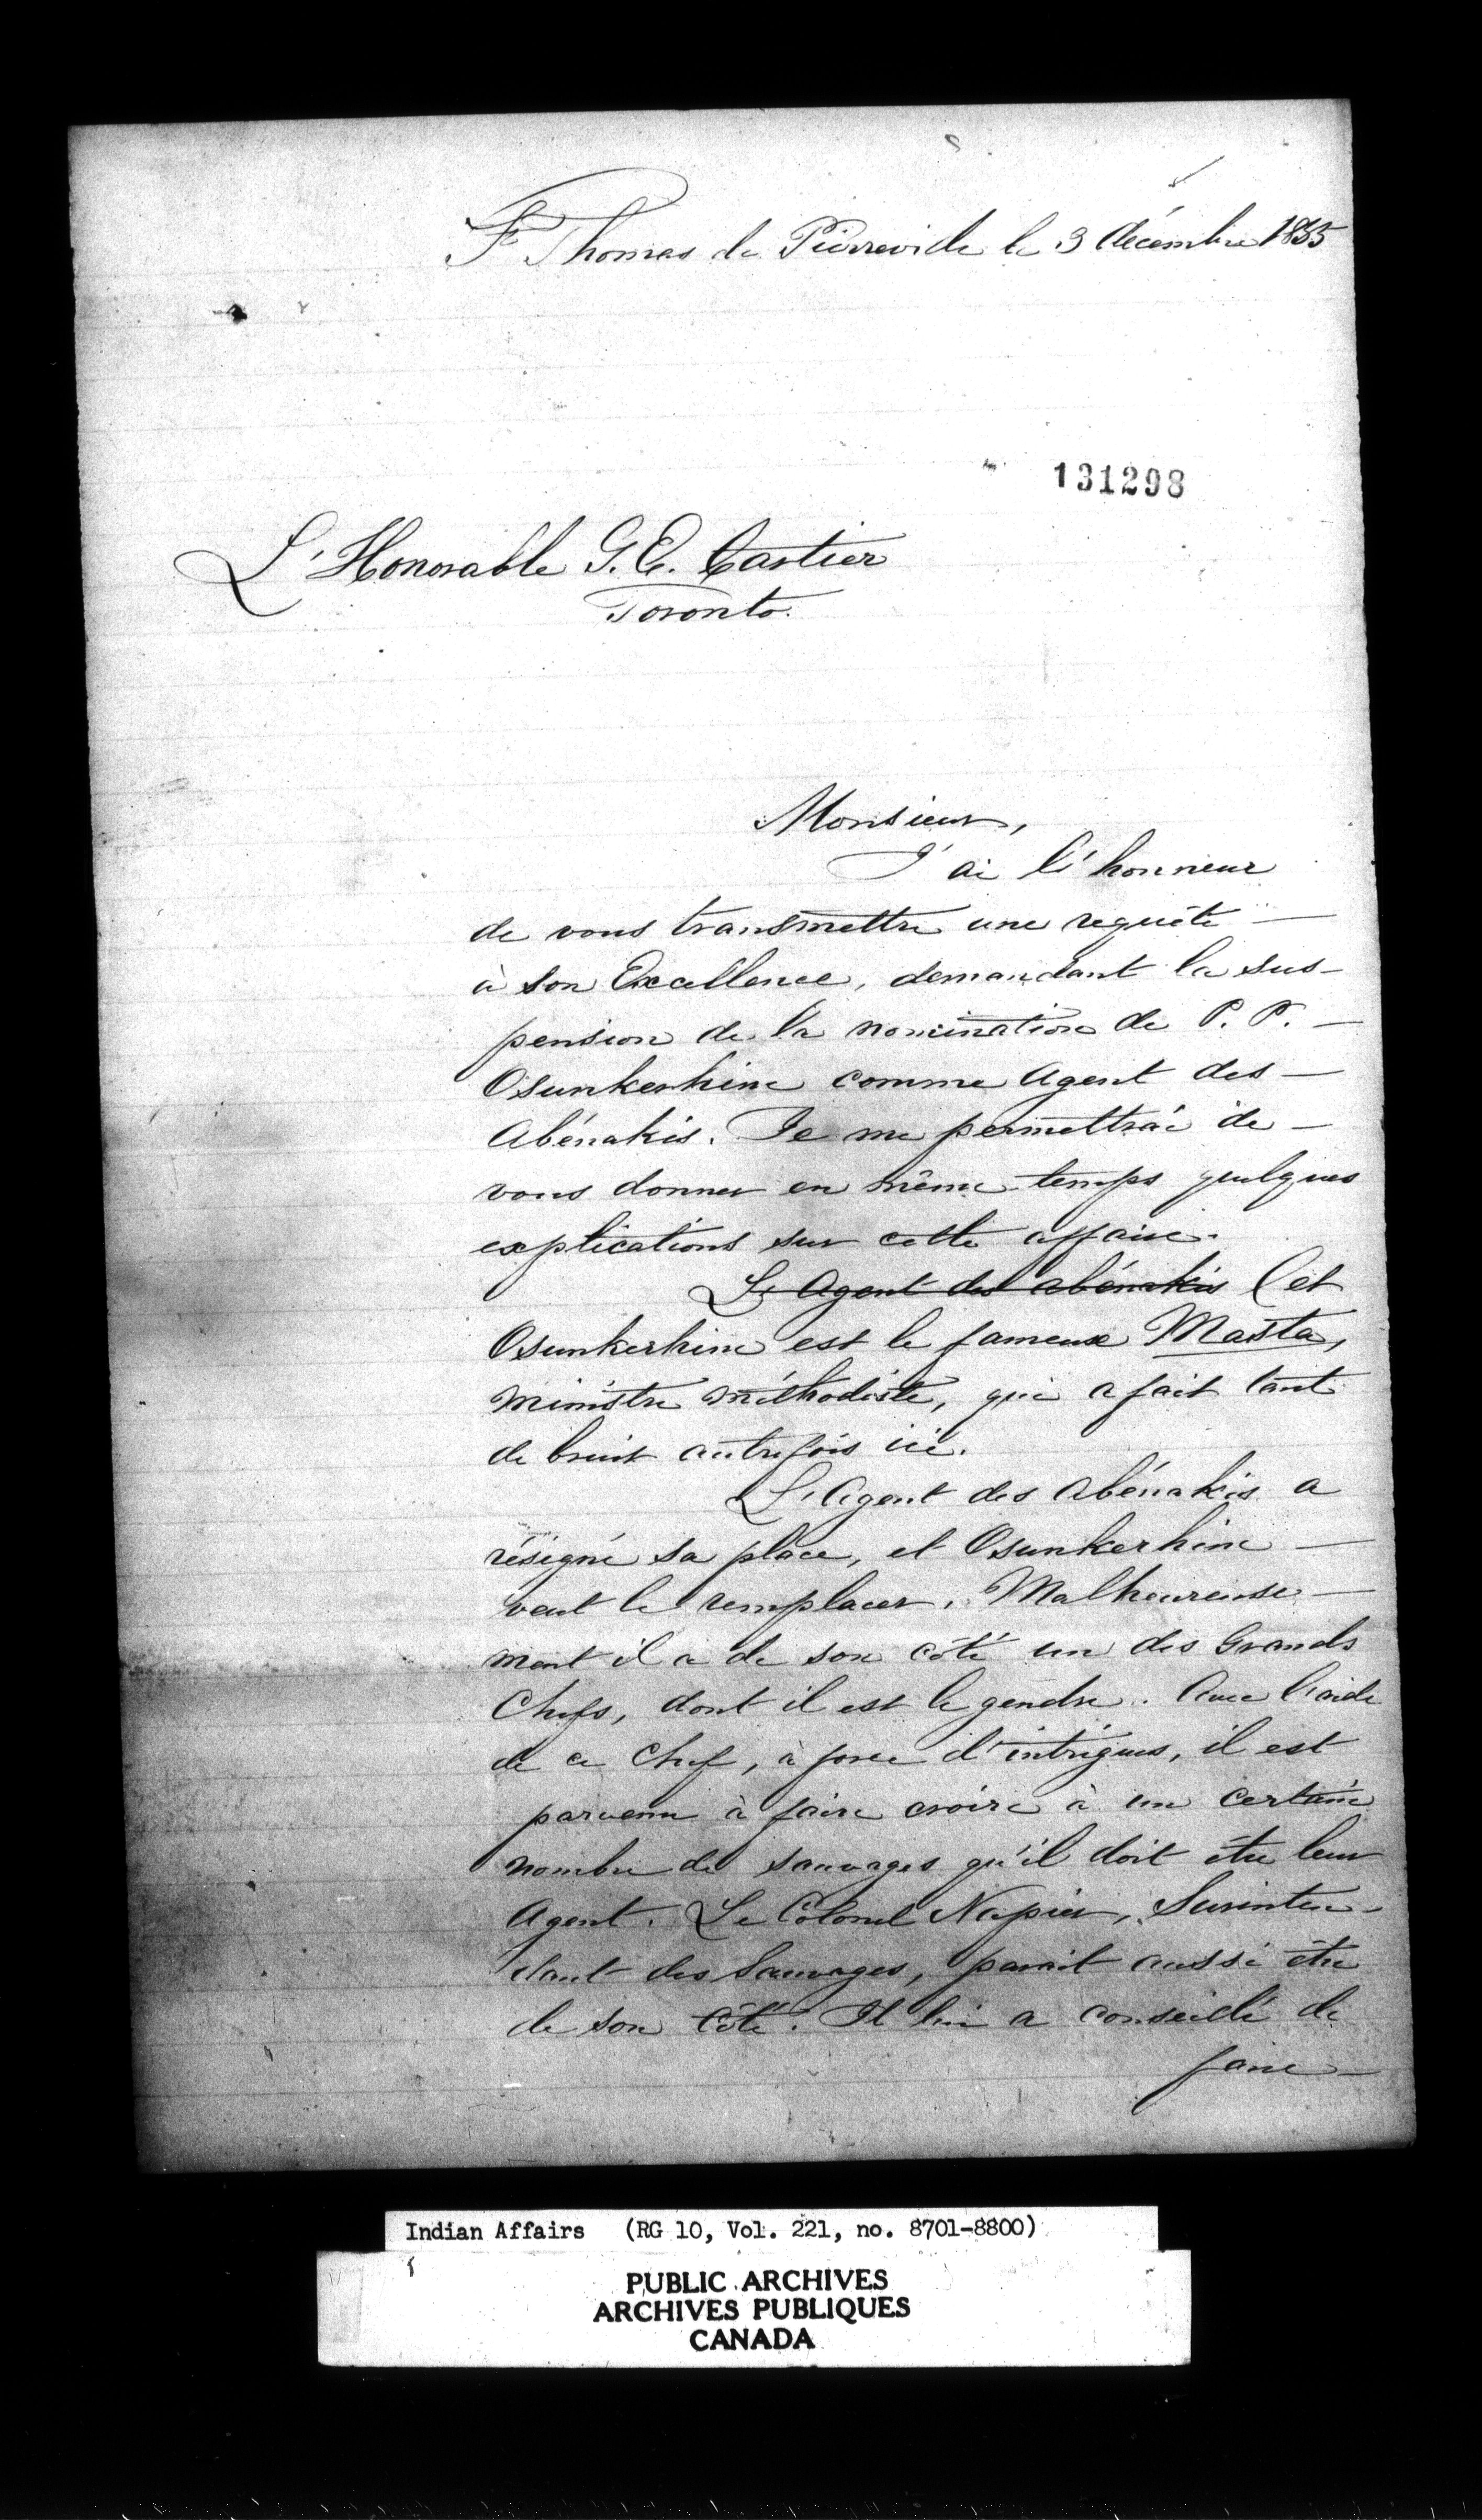 St Thomas de Pierreville le 3 décembre 1855
131298
L'Honorable G. E. Cartier
Toronto.
Monsieur,
J'ai l'honneur
de vous transmettre une requête —
à son Excellence, demandant la sus-
pension de la nomination de P. P. —
Osunkerhine comme Agent des —
Abénakis. Je me permettrai de —
vous donner en même temps quelques
explications sur cette affaire.
Le Agent des abénakis Cet
Osunkerhine est le fameux Masta,
ministre méthodiste, qui a fait tant
de bruit autrefois ici.
L'Agent des Abénakis a
résigné sa place, et Osunkerhine —
veut le remplacer. Malheureuse-
ment il a de son côté un des Grands
Chefs, dont il est le gendre. Avec l'aide
de ce Chef, à force d'intrigues, il est
parvenu à faire croire à un certain
nombre de sauvages qu'il doit être leur
Agent. Le Colonel Napier, Surinten-
dant des Sauvages, parait aussi être
de son côté. Il lui a conseillé de
faire —
Indian Affairs (RG 10, Vol. 221, no. 8701-8800)
PUBLIC ARCHIVES
ARCHIVES PUBLIQUES
CANADA